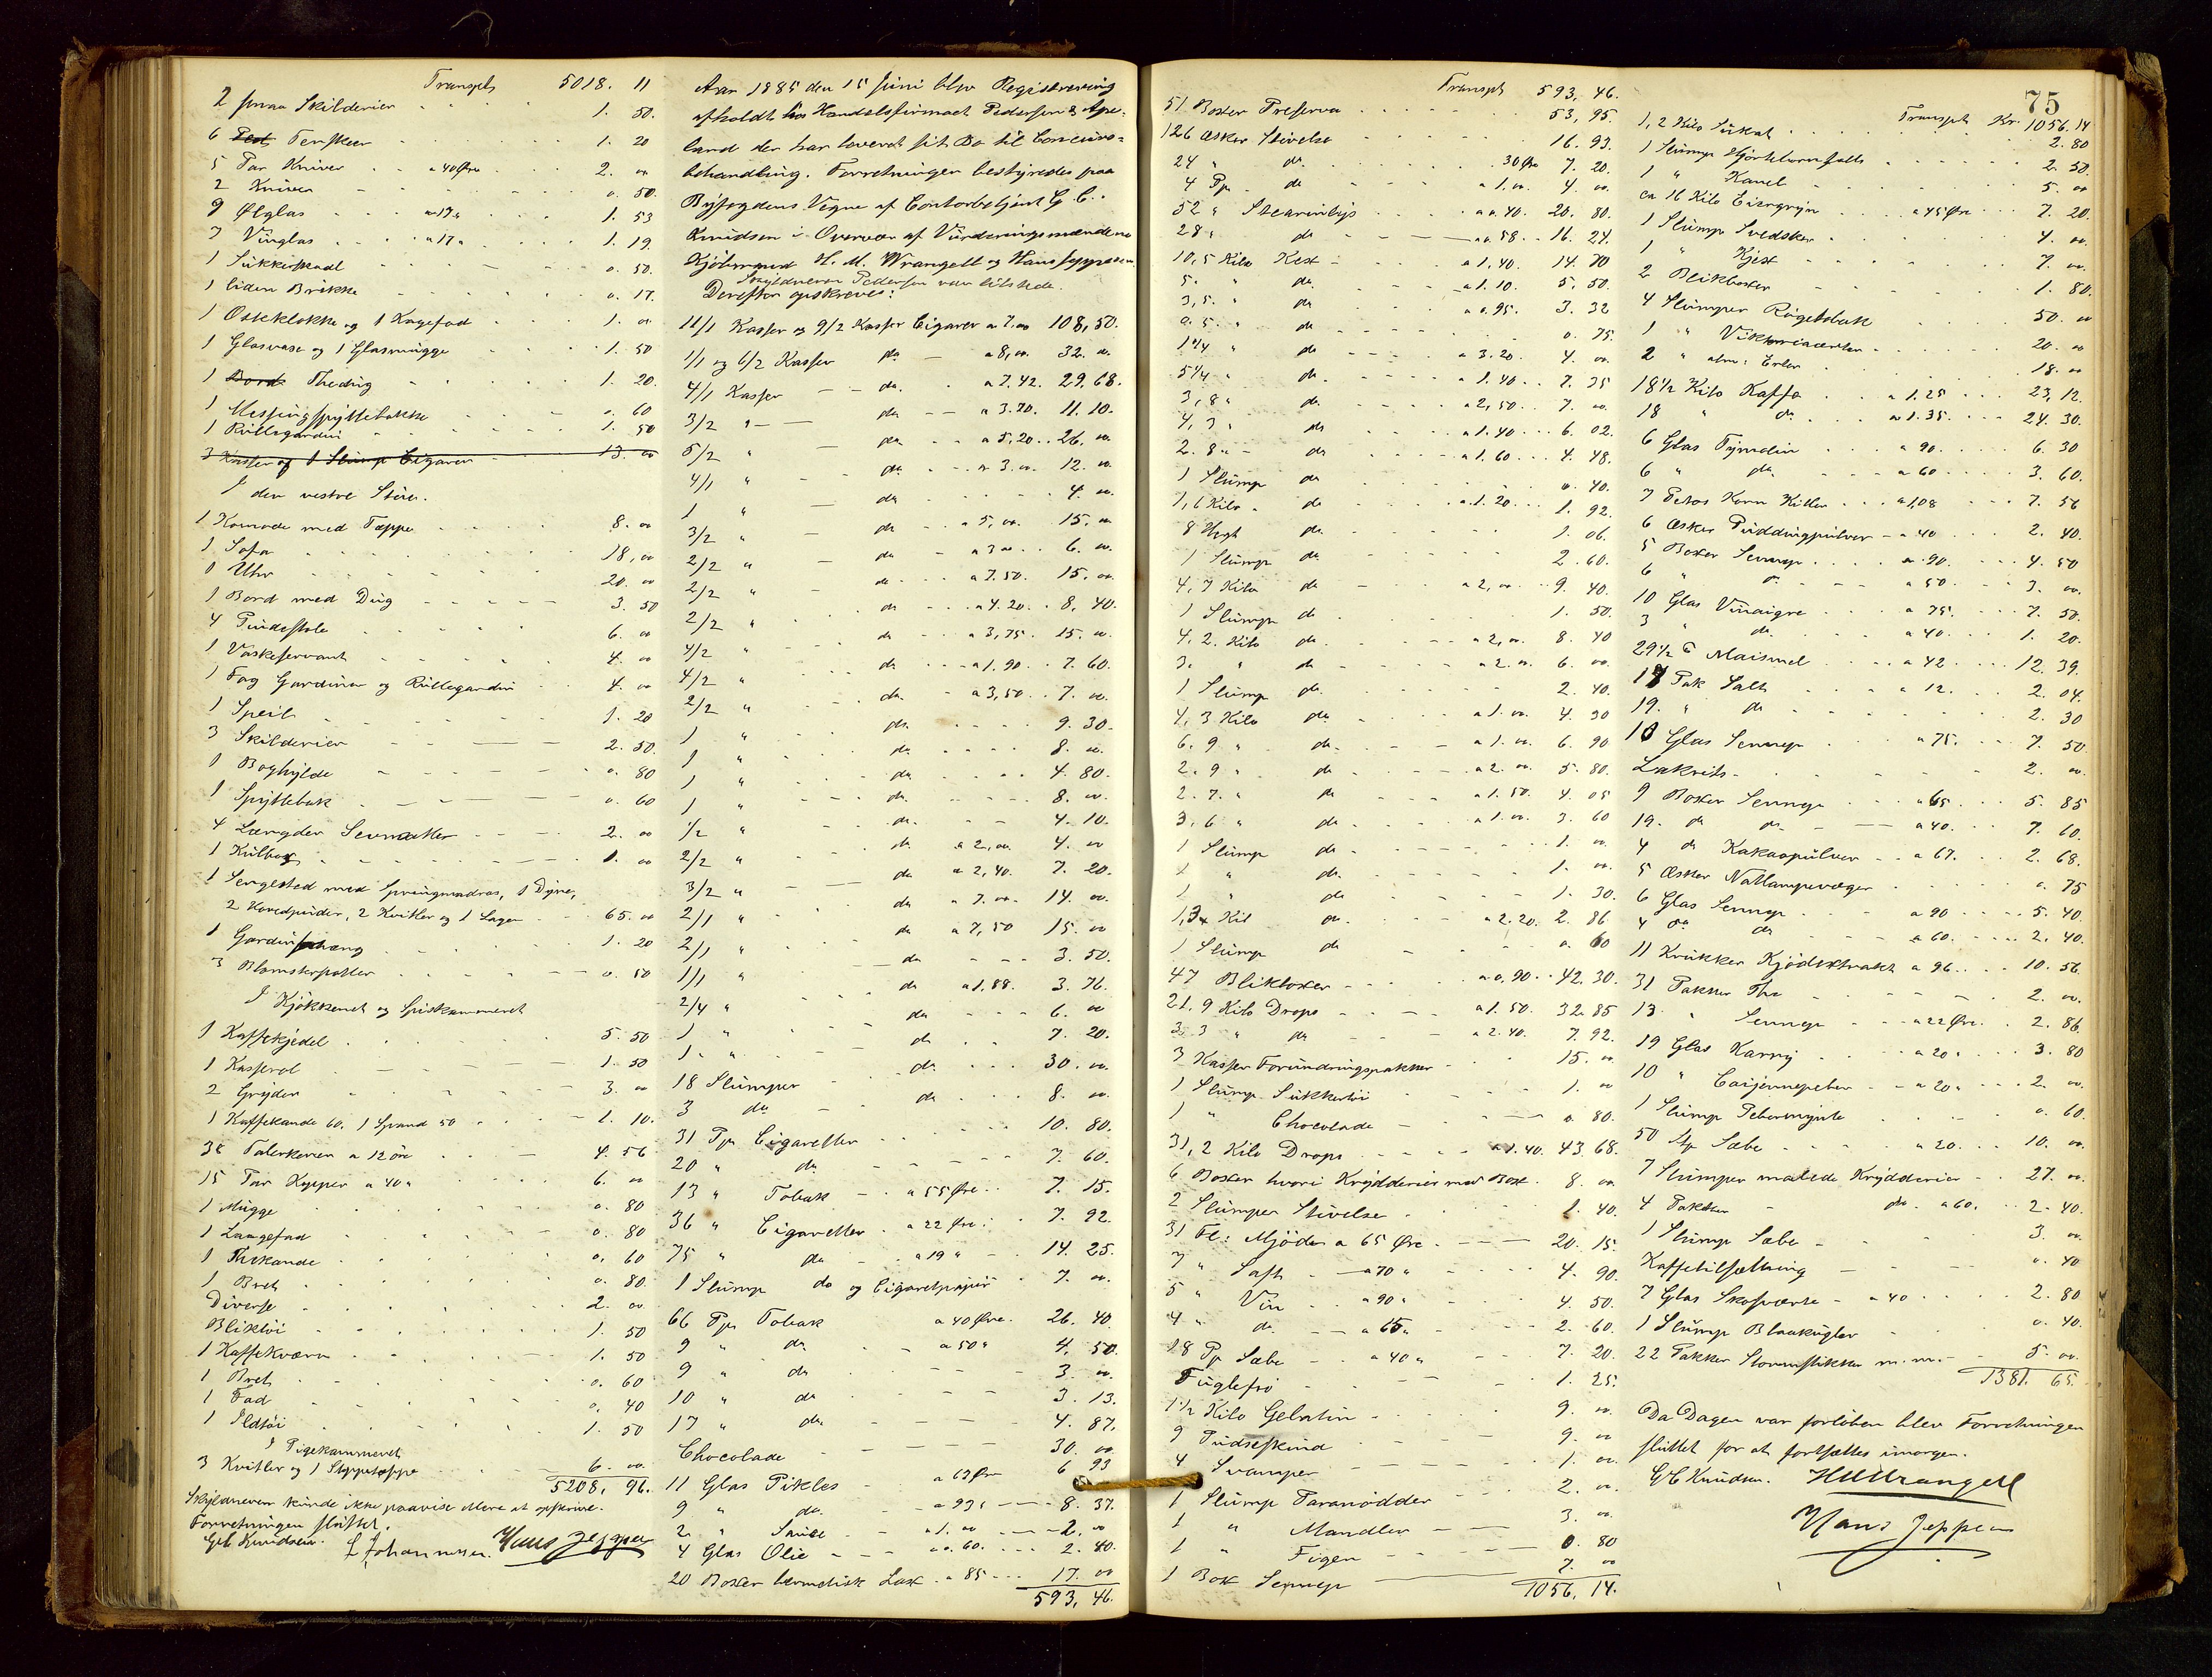 Transpt 5018. 11
2 smaa Skilderier 1. 50.
6 Test Terskeer 1. 20
5 Par Kniver a 40 Øre 2. 00
2 Kniver 0. 50.
9 Ølglas a 17 " 1. 53
7 Vinglas " 17 " 1. 19
1 Sukkerskaal 0. 50.
1 liden Brikke 0. 17.
1 Osteklokke og 1 Kagefad 1. 00
1 Glasvase og 1 Glasmugge 1. 50
1 Bord Thedug 1. 20.
1 Messingspyttebakke 0. 60
1 Rullegardin 1. 50
3 Kasser af 1 Slump Cigarer 13. 00
I den vestre Stue.
1 Komode med Tæppe 8. 00
1 Sofa 18, 00
1 Uhr 20. 00
1 Bord med Dug 3. 50
4 Pindestole 6. 00
1 Vaskeservant 4. 00
1 Fag Gardiner og Rullegardin 4. 00
1 Speil 1. 20
3 Skilderier 2. 50.
1 Boghylde 0. 80
1 Spyttebak 0. 60
4 Længder Sivmatter 2. 00
1 Kulbox 1. 00
1 Sengested med Springmadras, 1 Dyne,
2 Hovedpuder, 2 Kvilter og 1 Lagen 65. 00
1 Gardinophæng 1. 20
3 Blomsterpotter 0. 50
I Kjøkkenet og Spiskammeret
1 Kaffekjedel 5. 50
1 Kasserol 1. 50
2 Gryder 3. 00
1 Kaffekande 60. 1 Spand 50 1. 10.
38 Talerkener a 12 øre 4. 56
15 Par Kopper a 40 " 6. 00
1 Mugge 0. 80
1 Langefad 0. 80
1 Thekande 0. 60
1 Bret 0. 80
Diverse 2. 00
Bliktøi 1. 50
1 Kaffekværn 1. 50
1 Bret 0. 60
1 Fad 0. 40
1 Ildtøi 1. 50
I Pigekammeret
3 Kvilter og 1 Stoppetæppe 6. 00
5208, 96.
Skyldneren kunde ikke paavise Mere at opskrive.
Forretningen sluttet.
GC Knudsen. L Johannesen. Hans Jeppesen
Aar 1885 den 15 Juni blev Registrering
afholdt hos Handelsfirmaet Pedersen & Ape-
land der har leveret sit Bo til Concurs-
behandling. Forretningen bestyredes paa
Byfogdens Vegne af Contorbetjent G. C.
Knudsen i Overvær af Vurderingsmændene
Kjöbmand H. M. Wrangell og Hans Jeppesen
Skyldneren Pedersen var tilstede.
Derefter opskreves:
11/1 Kasser og 9/2 Kasser Cigarer a 7.00 108,50.
1/1 og 6/2 Kasser do a 8,00. 32. 00
4/1 Kasser do. a 7. 42. 29. 68.
3/2 " do a 3. 70. 11. 10.
5/2 " do a 5,20 26. 00
4/1 " do. a 3. 00. 12. 00
1 " do 4. 00.
3/2 " do a 5, 00. 15. 00
2/2 " do a 3 00 6. 00.
2/2 " do a 7. 50. 15. 00.
2/2 " do a 4. 20 8, 40.
4/2 " do a 3,75. 15. 00.
4/2 " do a 1. 90 7. 60.
2/2 " do a 3,50 7. 00.
1 " do. 9. 30.
1 " do 8. 00.
1 " do 4. 80.
1 " do. 8. 00.
1/2 " do. 4. 10.
2/2 " do. a 2,00. 4. 00
3/2 " do a 2,40. 7. 20.
2/1 " do a 7. 00. 14. 00.
2/1 " do a 7,50 15. 00
1/1 " do 3. 50.
2/4 " do a 1,88. 3. 76.
1 " do 6. 00
1. " do 7. 20.
18 Slumper do. 30. 00.
3 do do 8. 00.
31 Pp Cigaretter 10. 80.
20 " do 7. 60.
13 " Tobak a 55 Øre 7. 15.
36 " Cigaretter a 22 Øre 7. 92.
75 " do a 19 " 14. 25.
1 Slump do og Cigaretpapir 7. 00.
66 Pp Tobak a 40 Øre. 26. 40.
9 " do a 50 " 4. 50.
9 " do 3. 00.
10 " do 3. 13.
17 " do 4. 87.
Chocolade 30. 00
11 Glas Pikles a 63 Øre 6 93
9 " do. a 93 " 8. 37.
2 " Sauce a 1. 00 2. 00
4 Glas Olie a 0. 60. 2. 40.
20 Boxer hermetisk Lax a 85 17. 00
593, 46.
75
Transpt 593, 46.
51 Boxer Preserva 53, 95.
126 Æsker Stivelse 16. 93.
24 " do. 30 Øre 7. 20.
4 Pp. do a 1. 00. 4. 00.
52 " Stearinlys a 0. 40. 20. 80.
28 " do a 0. 58 16. 24.
10,5 Kilo Kjex a 1,40. 14. 70
5. " do. a 1. 10. 5. 50.
3,5. " do a 0. 95. 3. 32
0. 5. " do 0. 75.
1 1/4 " do a 3. 20. 4. 00.
5 1/4 " do. a 1. 40 7. 35
3,8 " do a 2,50 7. 00.
4,3 " do a 1. 40 6. 02.
2. 8 " do a 1. 60 4. 48.
1 Slump do 0. 40.
1,6 Kilo do a 1. 20 1. 92.
8 Hegt do. 1. 06.
1 Slump do 2. 60.
4,7 Kilo do a 2,00 9. 40.
1 Slump do 1. 50.
4. 2. Kilo do. a 2, 00. 8. 40
3. " do a 2. 00. 6. 00.
1 Slump do. 2. 40.
4,3 Kilo do a 1. 00. 4. 30
6. 9 " do a 1. 00. 6. 90
2. 9 " do a 2. 00. 5. 80.
2. 7. " do a 1. 50. 4. 05
3,6 " do a 1. 00. 3. 60
1 Slump do 1. 00.
1 " do. 1. 00.
1 " do 1. 30.
1,3 Kil do. a 2. 20. 2. 86
1 Slump do 0. 60
47 Blikboxer a 0,90 42. 30.
21. 9 Kilo Drops a 1. 50. 32. 85
3. 3 " do a 2. 40. 7. 92.
3 Kasser Forundringspakker 15. 00
1 Slump Sukkertøi 1. 00
1 " Chocolade 0. 80.
31,2 Kilo Drops a 1. 40. 43. 68.
6 Boxer hvori Krydderier med Box. 8. 00
2 Slumper Stivelse 1. 40.
31 Fl: Mjöd a 65 Øre 20. 15.
7 " Saft a 70 " 4. 90.
5 " Vin a 90 " 4. 50.
4 " do. a 65 " 2. 60.
18 Pp Sæbe a 40 " 7. 20.
Fuglefrø 1. 25.
1 1/2 Kilo Gelatin 9. 00.
9 Pudseskind 9. 00
4 Svamper 1. 00.
1 Slump Paranødder 2. 00.
1 " Mandler 3. 00
1 " Figen 0. 80
1 Box Sennep 7. 00
1056, 14.
Transpt Kr. 1056. 14
1,2 Kilo Sukat 2. 80
1 Slump Hjortetornsalt 2. 50.
1 " Kanel 5. 00
ca 16 Kilo Eiergryn a 45 Øre 7. 20.
1 Slump Svedsker 4. 00.
1 " Kjex 7. 00.
2 Blikboxer 1. 80.
4 Slumper Røgetobak 50. 00
1 " Viktoriaærter 20. 00
2 " alm: Erter 18. 00
18 1/2 Kilo Kaffe a 1. 25 23,12.
18 " do a 1. 35. 24. 30.
6 Glas Tymelin a 90. 6. 30
6 " do. a 60 3. 60.
7 a 1,08 7. 56
6 Æsker Puddingpulver a 40 2. 40.
5 Boxer Sennep a 90. 4. 50
6 " do a 50 3. 00.
10 Glas Vinaigre a 75. 7. 50.
3 " do. a 40. 1. 20.
29 1/2 ℔ Maismel a 42 12. 39.
17 Pak Salt a 12. 2. 04.
19. " do 2. 30
10 Glas Sennep a 75. 7. 50
Lakrits 2. 00.
9 Boxer Sennep a 65 5. 85
19. do do. a 40. 7. 60.
4 do Kakaopulver a 67. 2. 68.
5 Æsker Natlampevæger 0. 75
6 Glas Sennep a 90 5. 40.
4 do do a 60. 2. 40.
11 Krukker Kjödextrakt a 96 10. 56.
31 Pakker The 2. 00.
13. " Sennep a 22 Øre. 2. 86.
19 Glas Karry a 20 " 3. 80
10 " Caijennepeber a 20 " 2. 00.
1 Slump Pebermynte 0. 60.
50 St Sæbe a 20. 10. 00.
7 Slumper malede Krydderier 27. 00.
4 Pakker do. a 60. 2. 40.
1 Slump Sæbe 3. 00
Kaffetilsætning 0. 40
7 Glas Skosværte a 40 2. 80
1 Slump Blaakugler 0. 40.
22 Pakker Stormstikker m. m. 5. 00.
1381. 65.
Da Dagen var forløben blev Forretningen
sluttet for at fortsættes imorgen.
GC Knudsen. HMWrangell
Hans Jeppesen